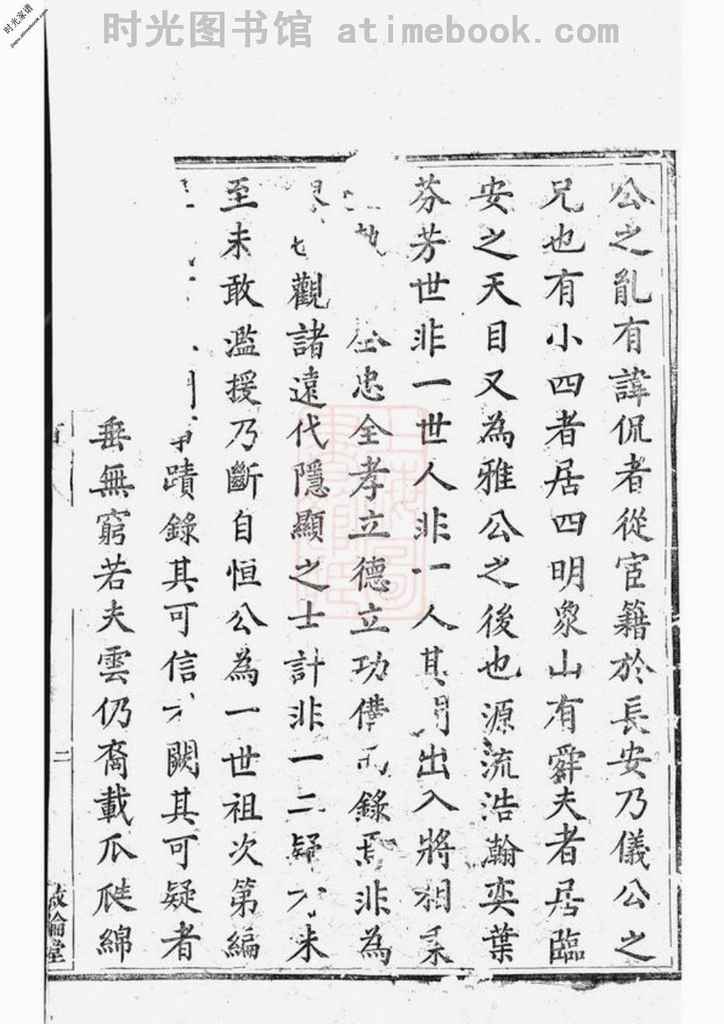 时光图书馆 atimebook.com
时光家谱
公之亂有諱侃者從宦籍於長安乃儀公之
兄也有小四者居四明象山有舜夫者居臨
安之天目又為雅公之後也源流浩瀚奕葉
芬芳世非一世人非一人其間出入將相
全忠全孝立德立功備錄焉非為
觀諸遠代隱顯之士計非一二疑未
至未敢濫援乃斷自恒公為一世祖次第編
事蹟錄其可信闕其可疑者
垂無窮若夫雲仍裔載瓜瓞綿
二
敘倫堂